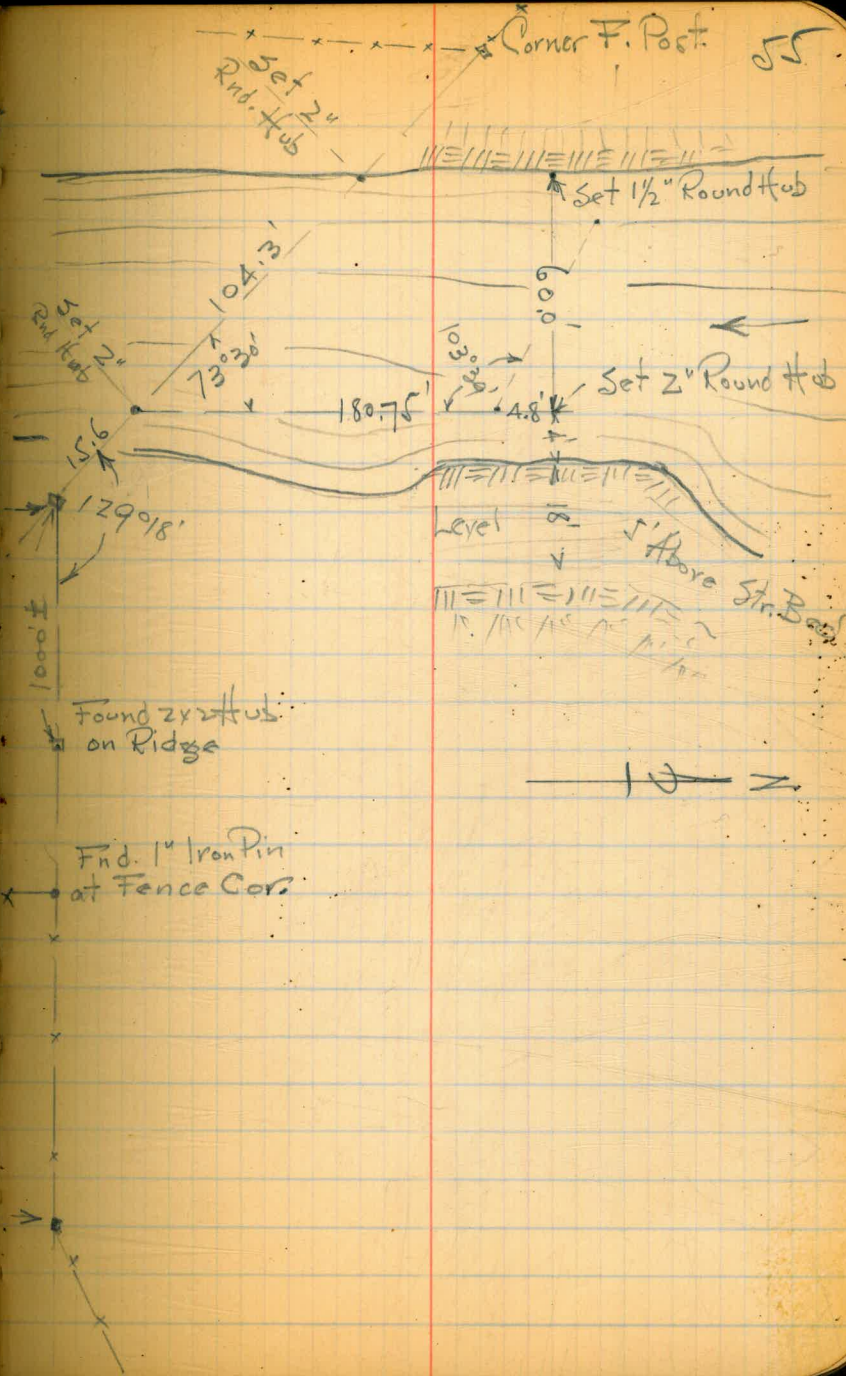 55
Corner F. Post.
Set 2"
Rnd. Hub
Set 1½" Round Hub
104.3'
60.0
Set 2"
Rnd Hub
73°30'
103°30'
Set 2" Round Hub
180.75'
4.8'
15.6
129°18'
Level
18'
5' Above Str. Bed
1000'±
Found 2x2 Hub
on Ridge
N
Fnd. 1" Iron Pin
at Fence Cor.